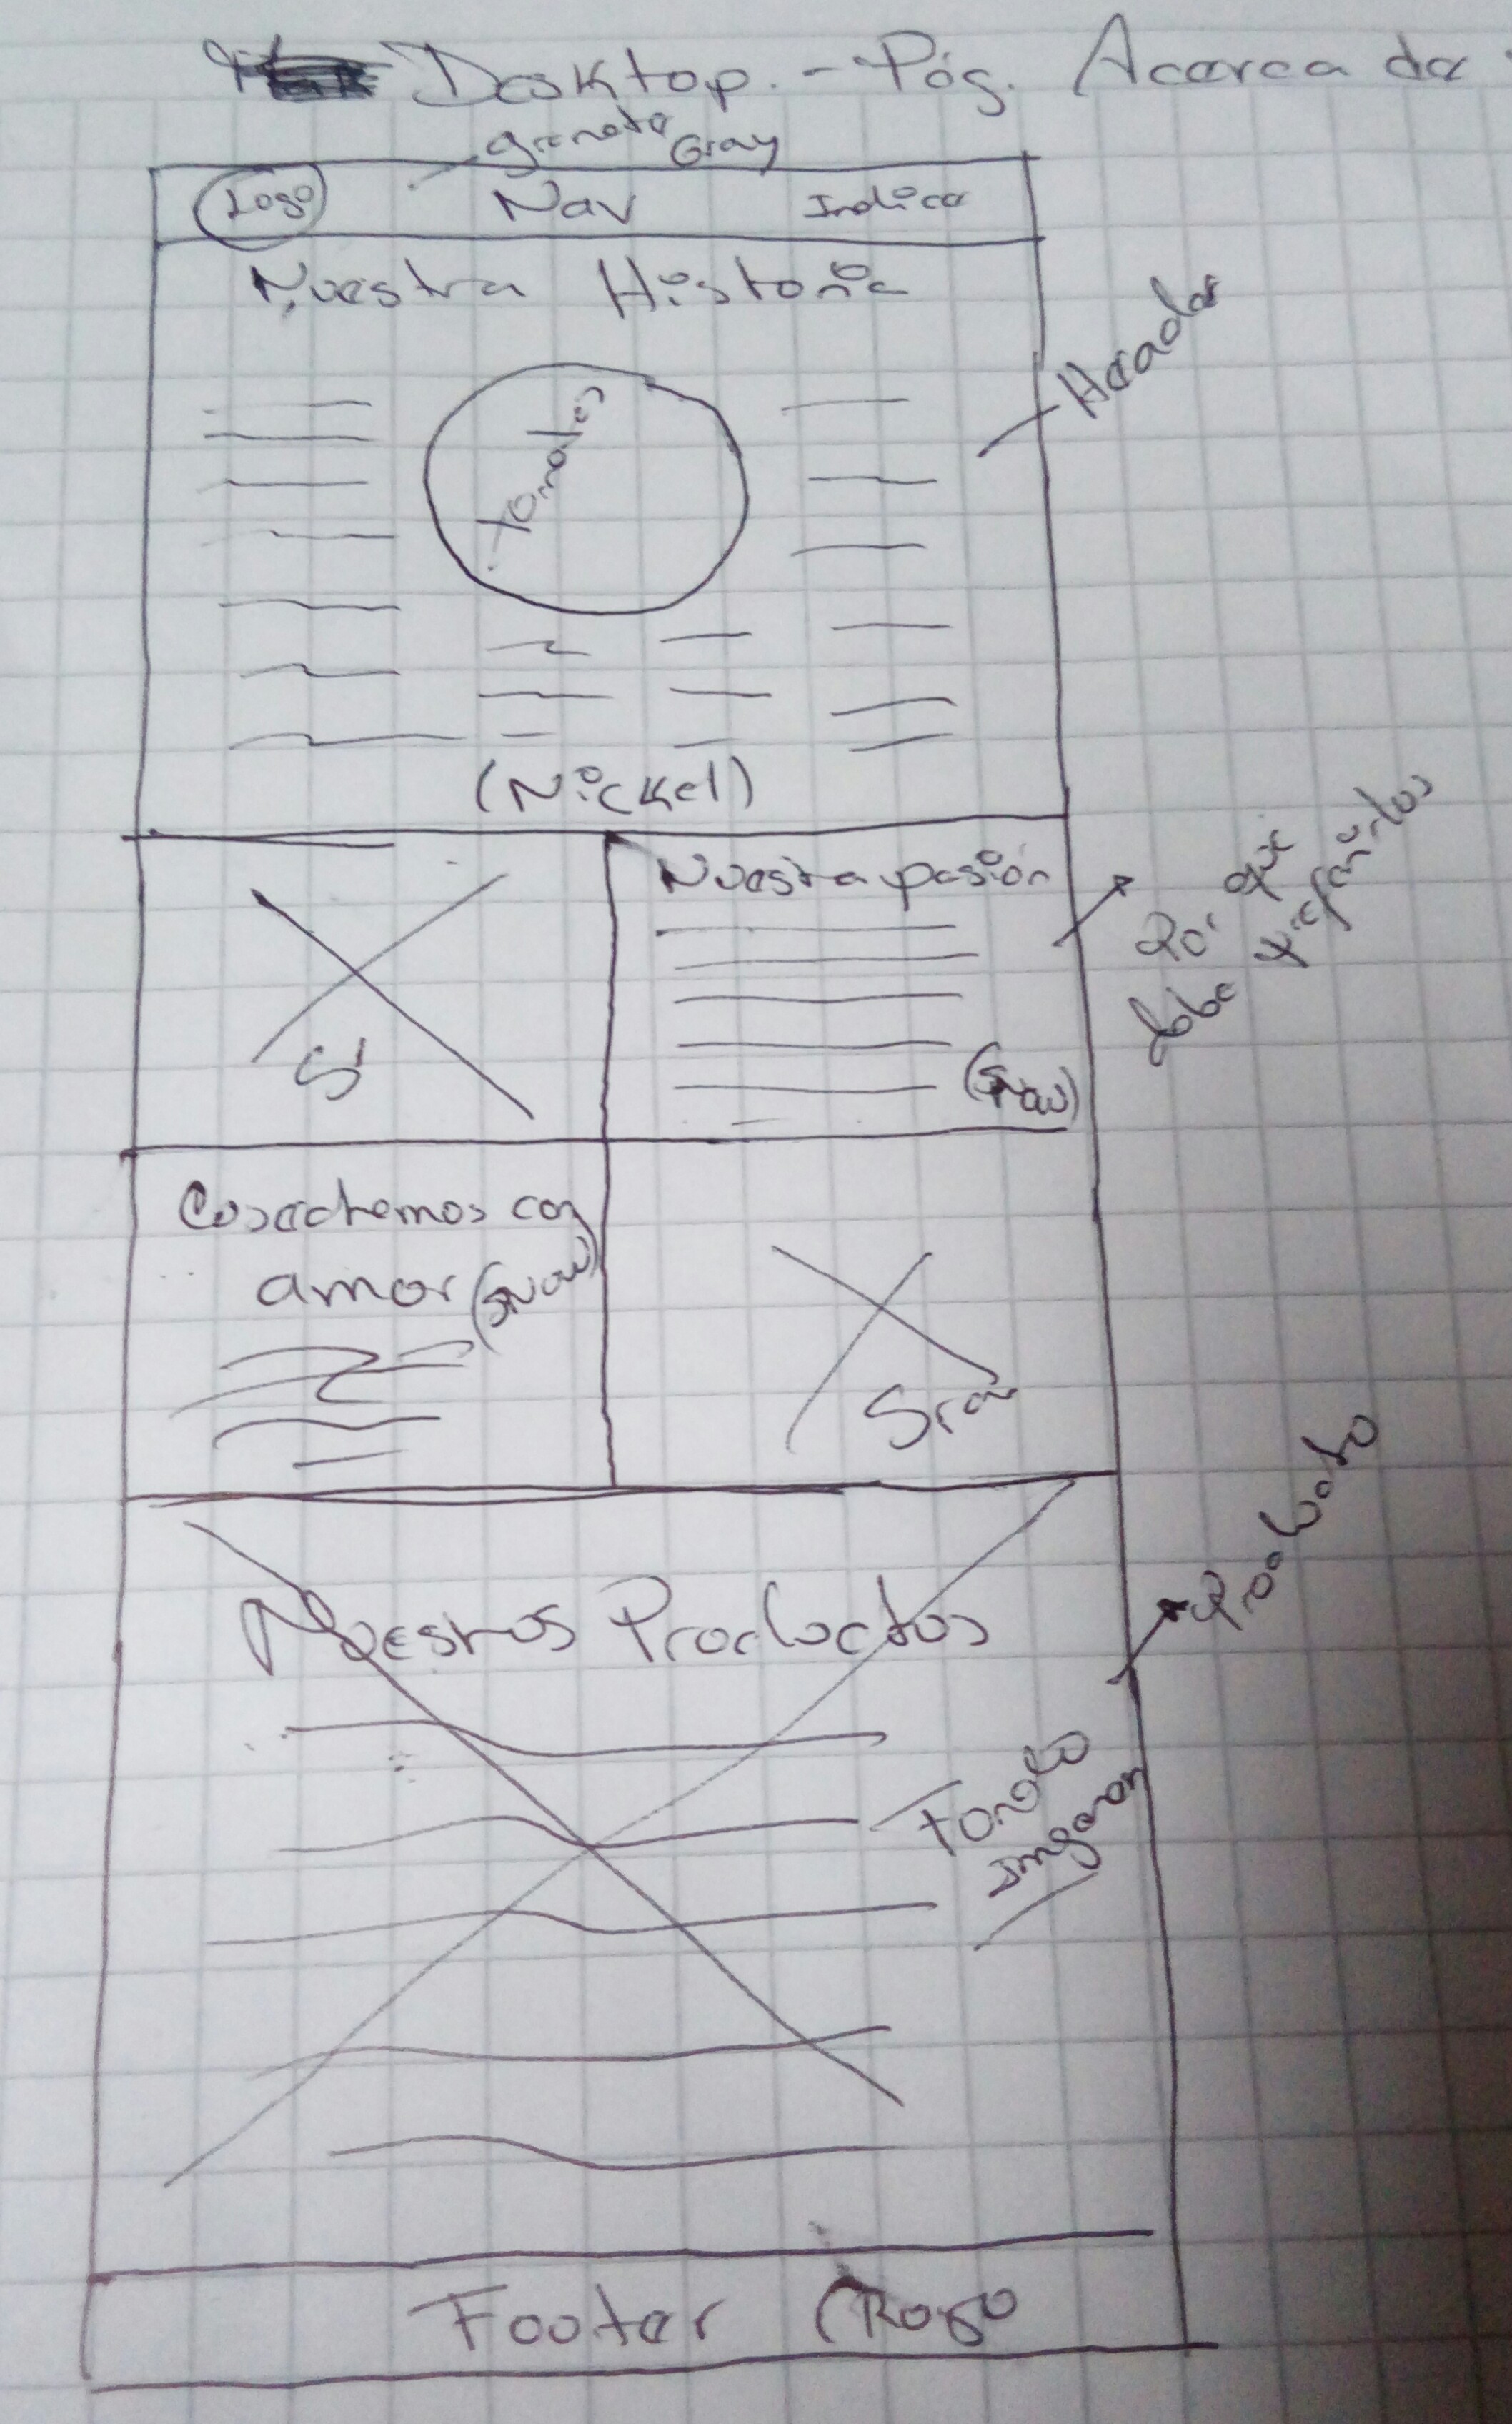 Desktop. - Pág. Acerca de
granate Gray
Logo Nav Indice
Nuestra Historia
Header
Tomates
(Nickel)
Nuestra pasión
Por que
debe preferirlos
Sr
(Snow)
Cosechemos con
amor (Snow)
Sra
Nuestros Productos
Producto
Fondo
Imagen
Footer (Rojo